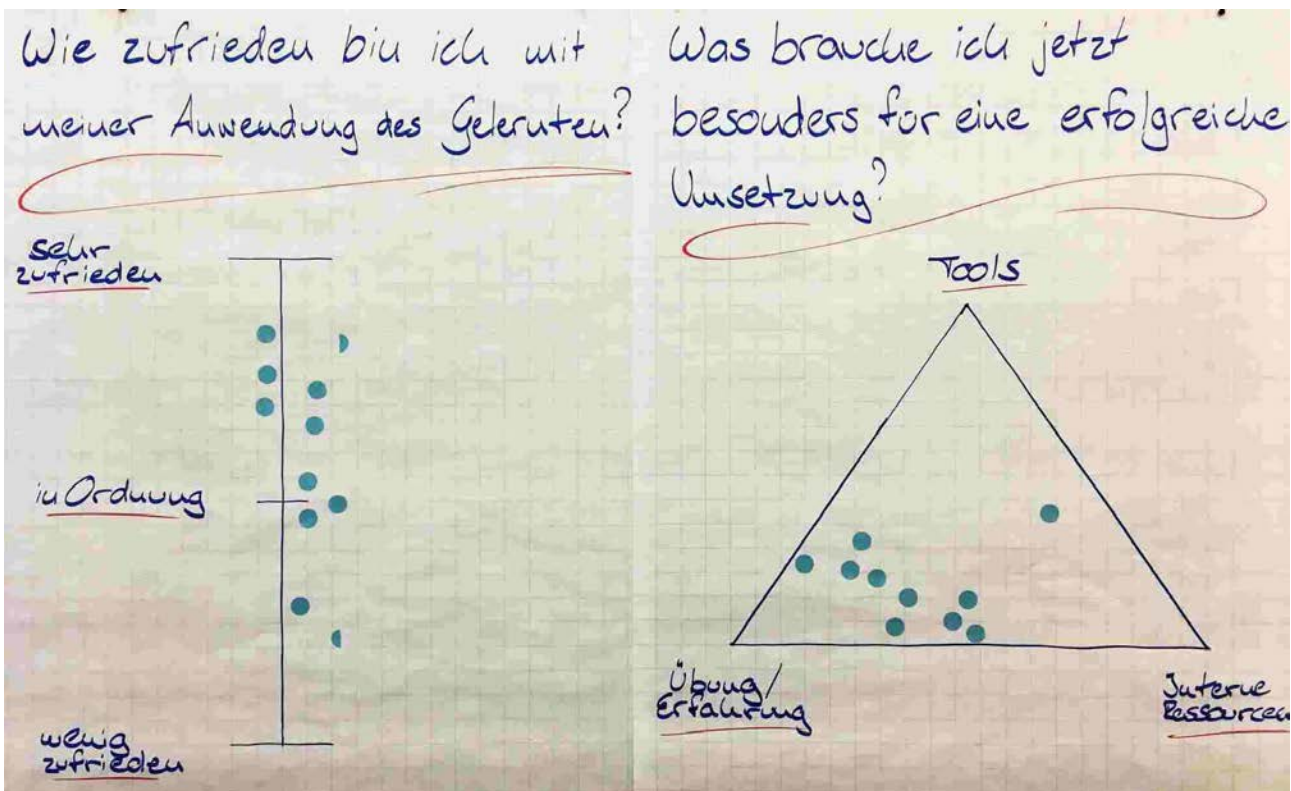 Wie zufrieden bin ich mit
meiner Anwendung des Gelernten?
sehr
zufrieden
in Ordnung
wenig
zufrieden
Was brauche ich jetzt
besonders für eine erfolgreiche
Umsetzung?
Tools
Übung/
Erfahrung
Interne
Ressourcen